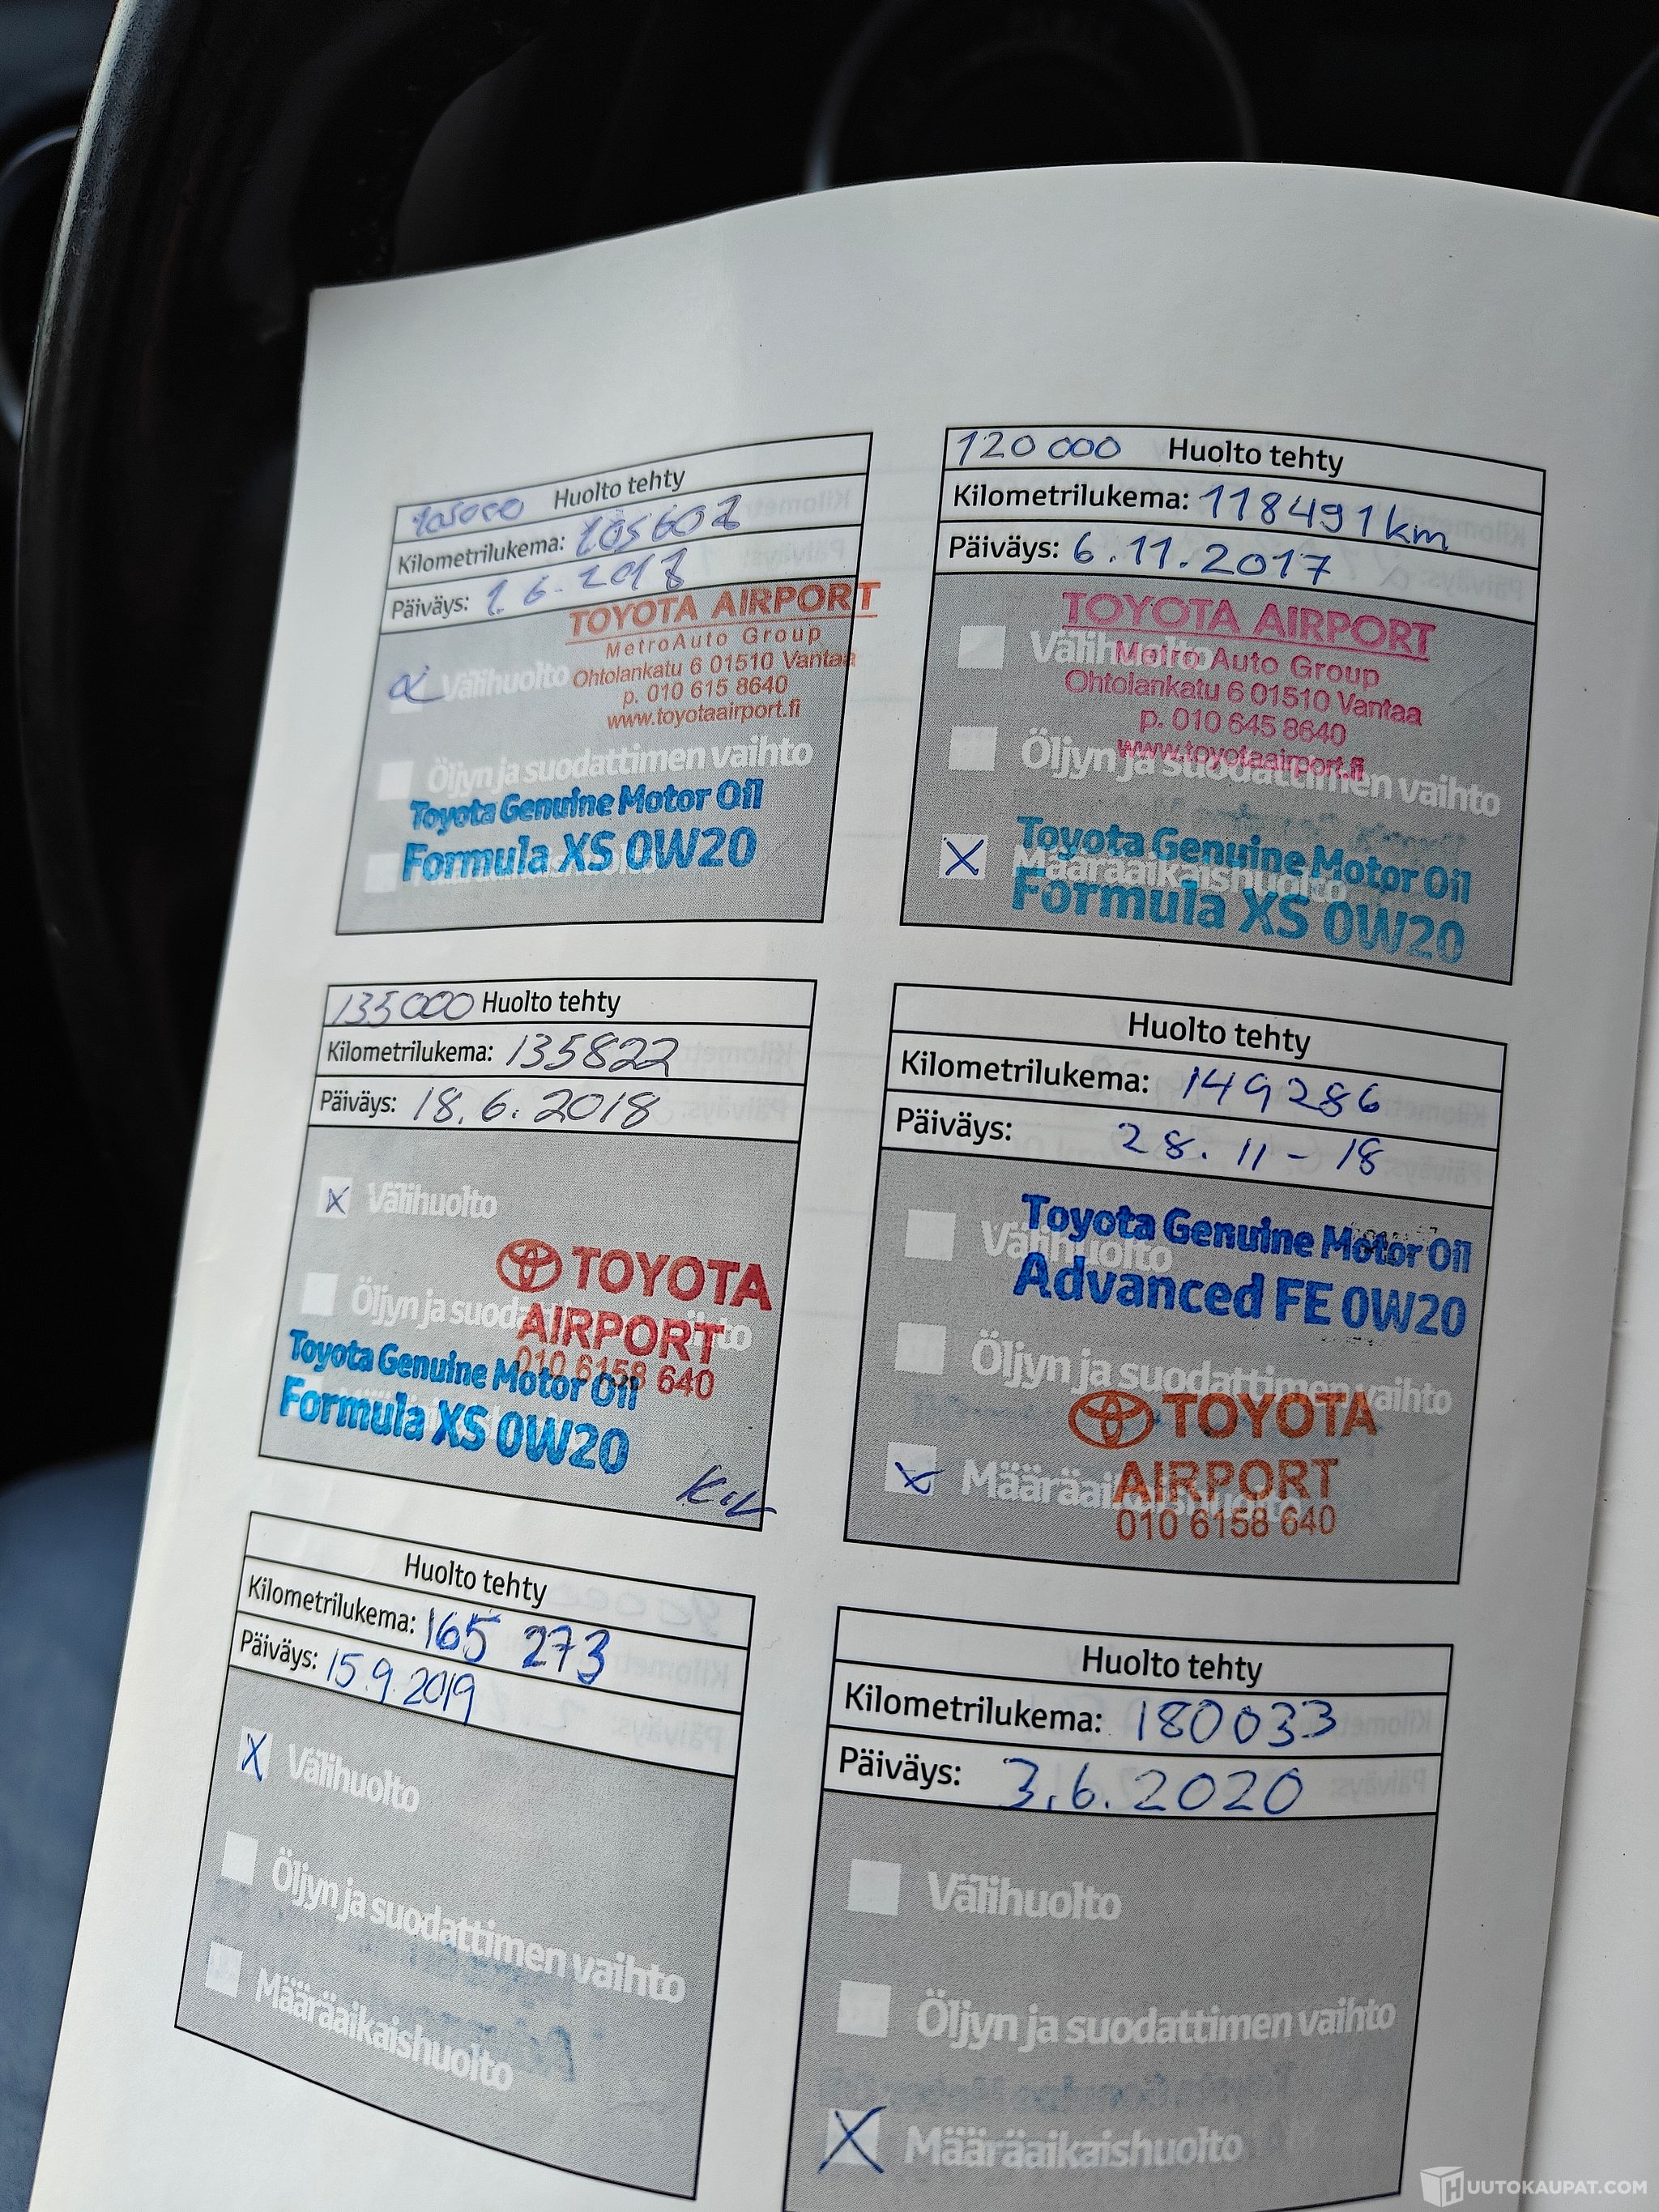 105000 Huolto tehty
Kilometrilukema: 105602
Päiväys: 1.6.2017
TOYOTA AIRPORT
MetroAuto Group
Välihuolto Ohtolankatu 6 01510 Vantaa
p. 010 615 8640
www.toyotaairport.fi
Öljyn ja suodattimen vaihto
Toyota Genuine Motor Oil
Formula XS 0W20
120 000 Huolto tehty
Kilometrilukema: 118491km
Päiväys: 6.11.2017
TOYOTA AIRPORT
Välihuolto
Metro Auto Group
Ohtolankatu 6 01510 Vantaa
p. 010 645 8640
www.toyotaairport.fi
Öljyn ja suodattimen vaihto
Toyota Genuine Motor Oil
X Määräaikaishuolto
Formula XS 0W20
135000 Huolto tehty
Kilometrilukema: 135822
Päiväys: 18.6.2018
x Välihuolto
TOYOTA
Öljyn ja suodattimen vaihto
AIRPORT
010 6158 640
Toyota Genuine Motor Oil
Formula XS 0W20
Huolto tehty
Kilometrilukema: 149286
Päiväys: 28.11-18
Toyota Genuine Motor Oil
Välihuolto
Advanced FE 0W20
Öljyn ja suodattimen vaihto
TOYOTA
x Määräaikaishuolto
AIRPORT
010 6158 640
Huolto tehty
Kilometrilukema: 165 273
Päiväys: 15.9.2019
X Välihuolto
Öljyn ja suodattimen vaihto
Määräaikaishuolto
Huolto tehty
Kilometrilukema: 180033
Päiväys: 3.6.2020
Välihuolto
Öljyn ja suodattimen vaihto
X Määräaikaishuolto
HUUTOKAUPAT.COM